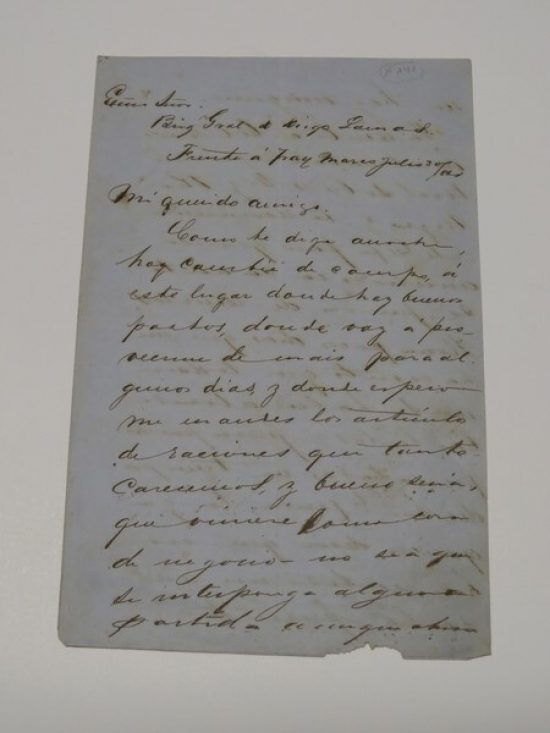 Exmo Señor.
Brig Gral D Diego Lamas.
Frente á Fray Marcos Julio 30/
Mi querido amigo.
Como te dige anoche,
hoy cambié de campo, á
este lugar donde hay buenos
pastos, donde voy á pro-
veerme de mais para al-
gunos dias, y donde espero
me mandes los artículo
de raciones que tanto
carecemos, y bueno seria,
que viniese como cosa
de negocio- no sea que
se interponga alguna
partida aunque